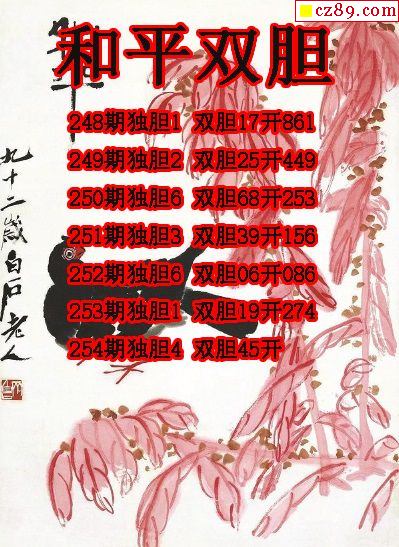 cz89.com
和平双胆
248期独胆1 双胆17开861
249期独胆2 双胆25开449
250期独胆6 双胆68开253
251期独胆3 双胆39开156
252期独胆6 双胆06开086
253期独胆1 双胆19开274
254期独胆4 双胆45开
九十二岁白石老人